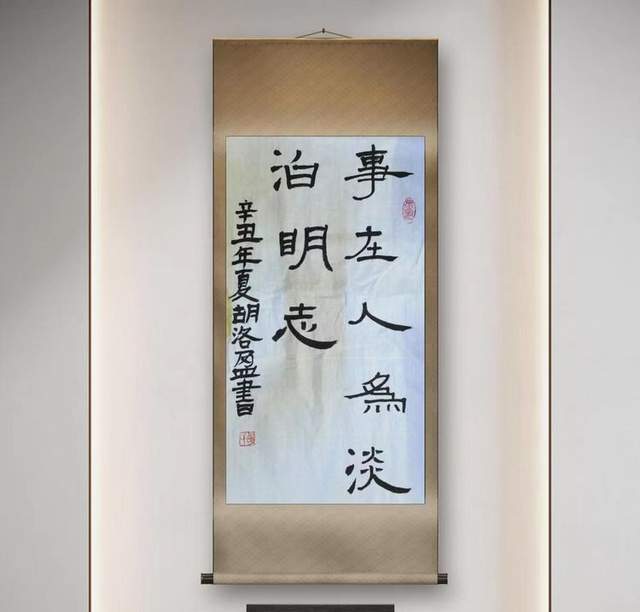 事在人為淡
泊明志
辛丑年夏胡洛盈書